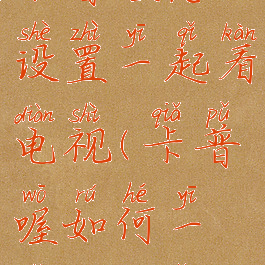 shè zhì yī qǐ kàn
设置一起看
diàn shì qiǎ pǔ
电视(卡普
wō rú hé yī
喔如何一